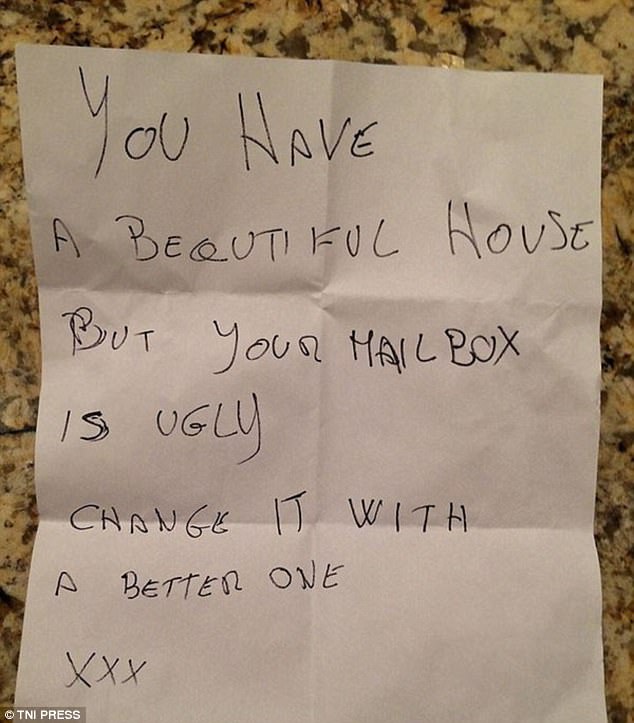 YOU HAVE
A BEAUTIFUL HOUSE
BUT YOUR MAILBOX
IS UGLY
CHANGE IT WITH
A BETTER ONE
XXX
© TNI PRESS